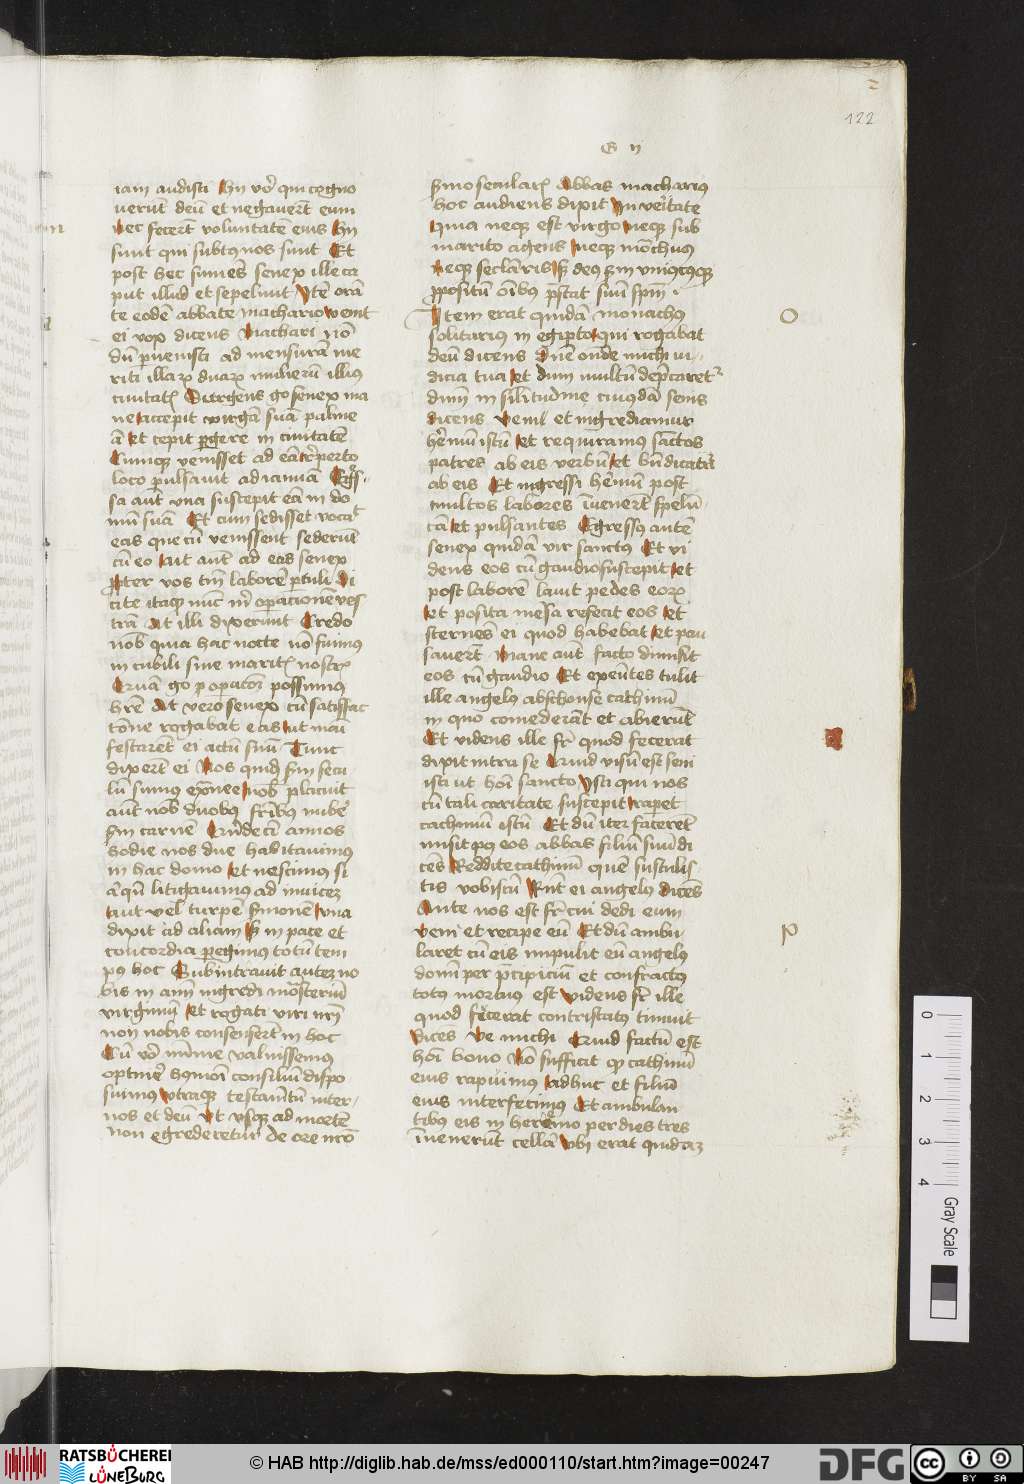 122
G ij
iam audisti Hii vero qui cogno
uerūt deū et negauerūt eum
nec fecerūt voluntatē eius Hii
sunt qui subtus nos sunt Et
post hec sumēs senex ille ca
put illud et sepeliuit Itē orā
te eodē abbate machario venit
ei vox dicens Machari nō
dū puenisti ad mensurā me
riti illaꝝ duaꝝ mulierū illius
ciuitatꝭ Surgens go senex ma
ne accepit virgā suā palme
ā et cepit ꝑgere in ciuitatē
Cumqꝫ venisset ad eā et reperto
loco pulsauit ad ianuā Egres
sa aūt vna suscepit eā in do
mū suā Et cum sedisset vocat
eas que cū venissent sederūt
cū eo ait aūt ad eas senex
ꝓpter vos tm̄ laborē ꝑtuli Di
cite itaqꝫ nūc mͥ oꝑacionē ves
trā At illi dixerunt Credo
nob̄ quia hac nocte nō fuimus
in cubili sine maritꝭ nostrꝭ
Quā go opacōꝫ possumus
h̄re At vero senex cū satisfac
tōne rogabat eas ut mani
festarēt ei actū suū Tunc
dixerūt ei Nos quidē sm secu
lū sumus exōnee nob̄ placuit
aūt nob̄ duobus fribus nubeͬ
sm carnē Quīdeci annos
hodie nos due habitauimus
in hac domo et nescimus si
āliqn̄ litigauimus ad inuiceꝫ
aut vel turpē smonē vna
dixit ad aliam sꝫ in pace et
concordia ꝑegimus totū tem
pus hoc Subintrauit auteꝫ no
bis in animū ingredi monasteriū
virginū et rogati viri nr̄i
non nobis consenserūt in hoc
Cū vō minime valuissemus
optineͬ hꝰmōi consiliū dispo
suimus vtraqꝫ testamētū inter
nos et deū Ut vsqꝫ ad mortē
non egrederetur de ore nr̄o
smo secularꝭ Abbas macharius
hoc audiens dixit In veritate
quia neqꝫ est virgo neqꝫ sub
marito agens neqꝫ mōchus
neqꝫ sclāris sꝫ deus sm vniuscuiusqꝫ
ꝓpositū oībus prestat suū spm̄
Item erat quidā monachus
solitarius in egipto qui rogabat
deū dicens Dn̄e onde michi iu
dicia tua et dum multū depcaretur
dum in silitudine cuiusdā senis
dicens Veni et ingrediamur
hemū istū et requiramus sanctos
patres ab eis verbū et bn̄dicatur
ab eis Et ingressi hemū post
multos labores inuenerūt spelū
cā et pulsantes Egressus autē
senex quidā vir sanctus Et vi
dens eos cū gaudio suscepit et
post laborē lauit pedes eoꝝ
et posita mēsa refecit eos et
sternēs ei quod habebat et pau
sauerūt Mane aūt facto dimisit
eos cū gaudio Et exeūtes tulit
ille angelus absconse cathinū
in quo comederāt et abierūt
Et videns ille fr quod fecerat
dixit intra se Quid visū est seni
isti ut hoī sancto Isti qui nos
cū tali caritate suscepit rapet
cachinū istū Et dū iter facerēt
misit pꝰ eos abbas filiū suū di
cēs Reddite cathinū quē sustulis
tis vobiscū Rn̄t ei angelus dicēs
Ante nos est fr cui dedi eum
veni et recipe eū Et dū ambu
laret cū eis impulit eū angelus
domi per p̄cipiciū et confractus
totus mortuus est videns fr ille
quod fecerat contristatus timuit
Dices Ve michi Quid factū est
hoī bono Nō sufficit qꝫ cathinū
eius rapuimus adhuc et filiū
eius interfecimus Et ambulan
tibus eis in heremo per dies tres
inuenerūt cellā vbi erat quidaꝫ
O
P
0 1 2 3 4
Gray Scale
RATSBÜCHEREI LÜNEBURG
© HAB http://diglib.hab.de/mss/ed000110/start.htm?image=00247
DFG
cc BY SA